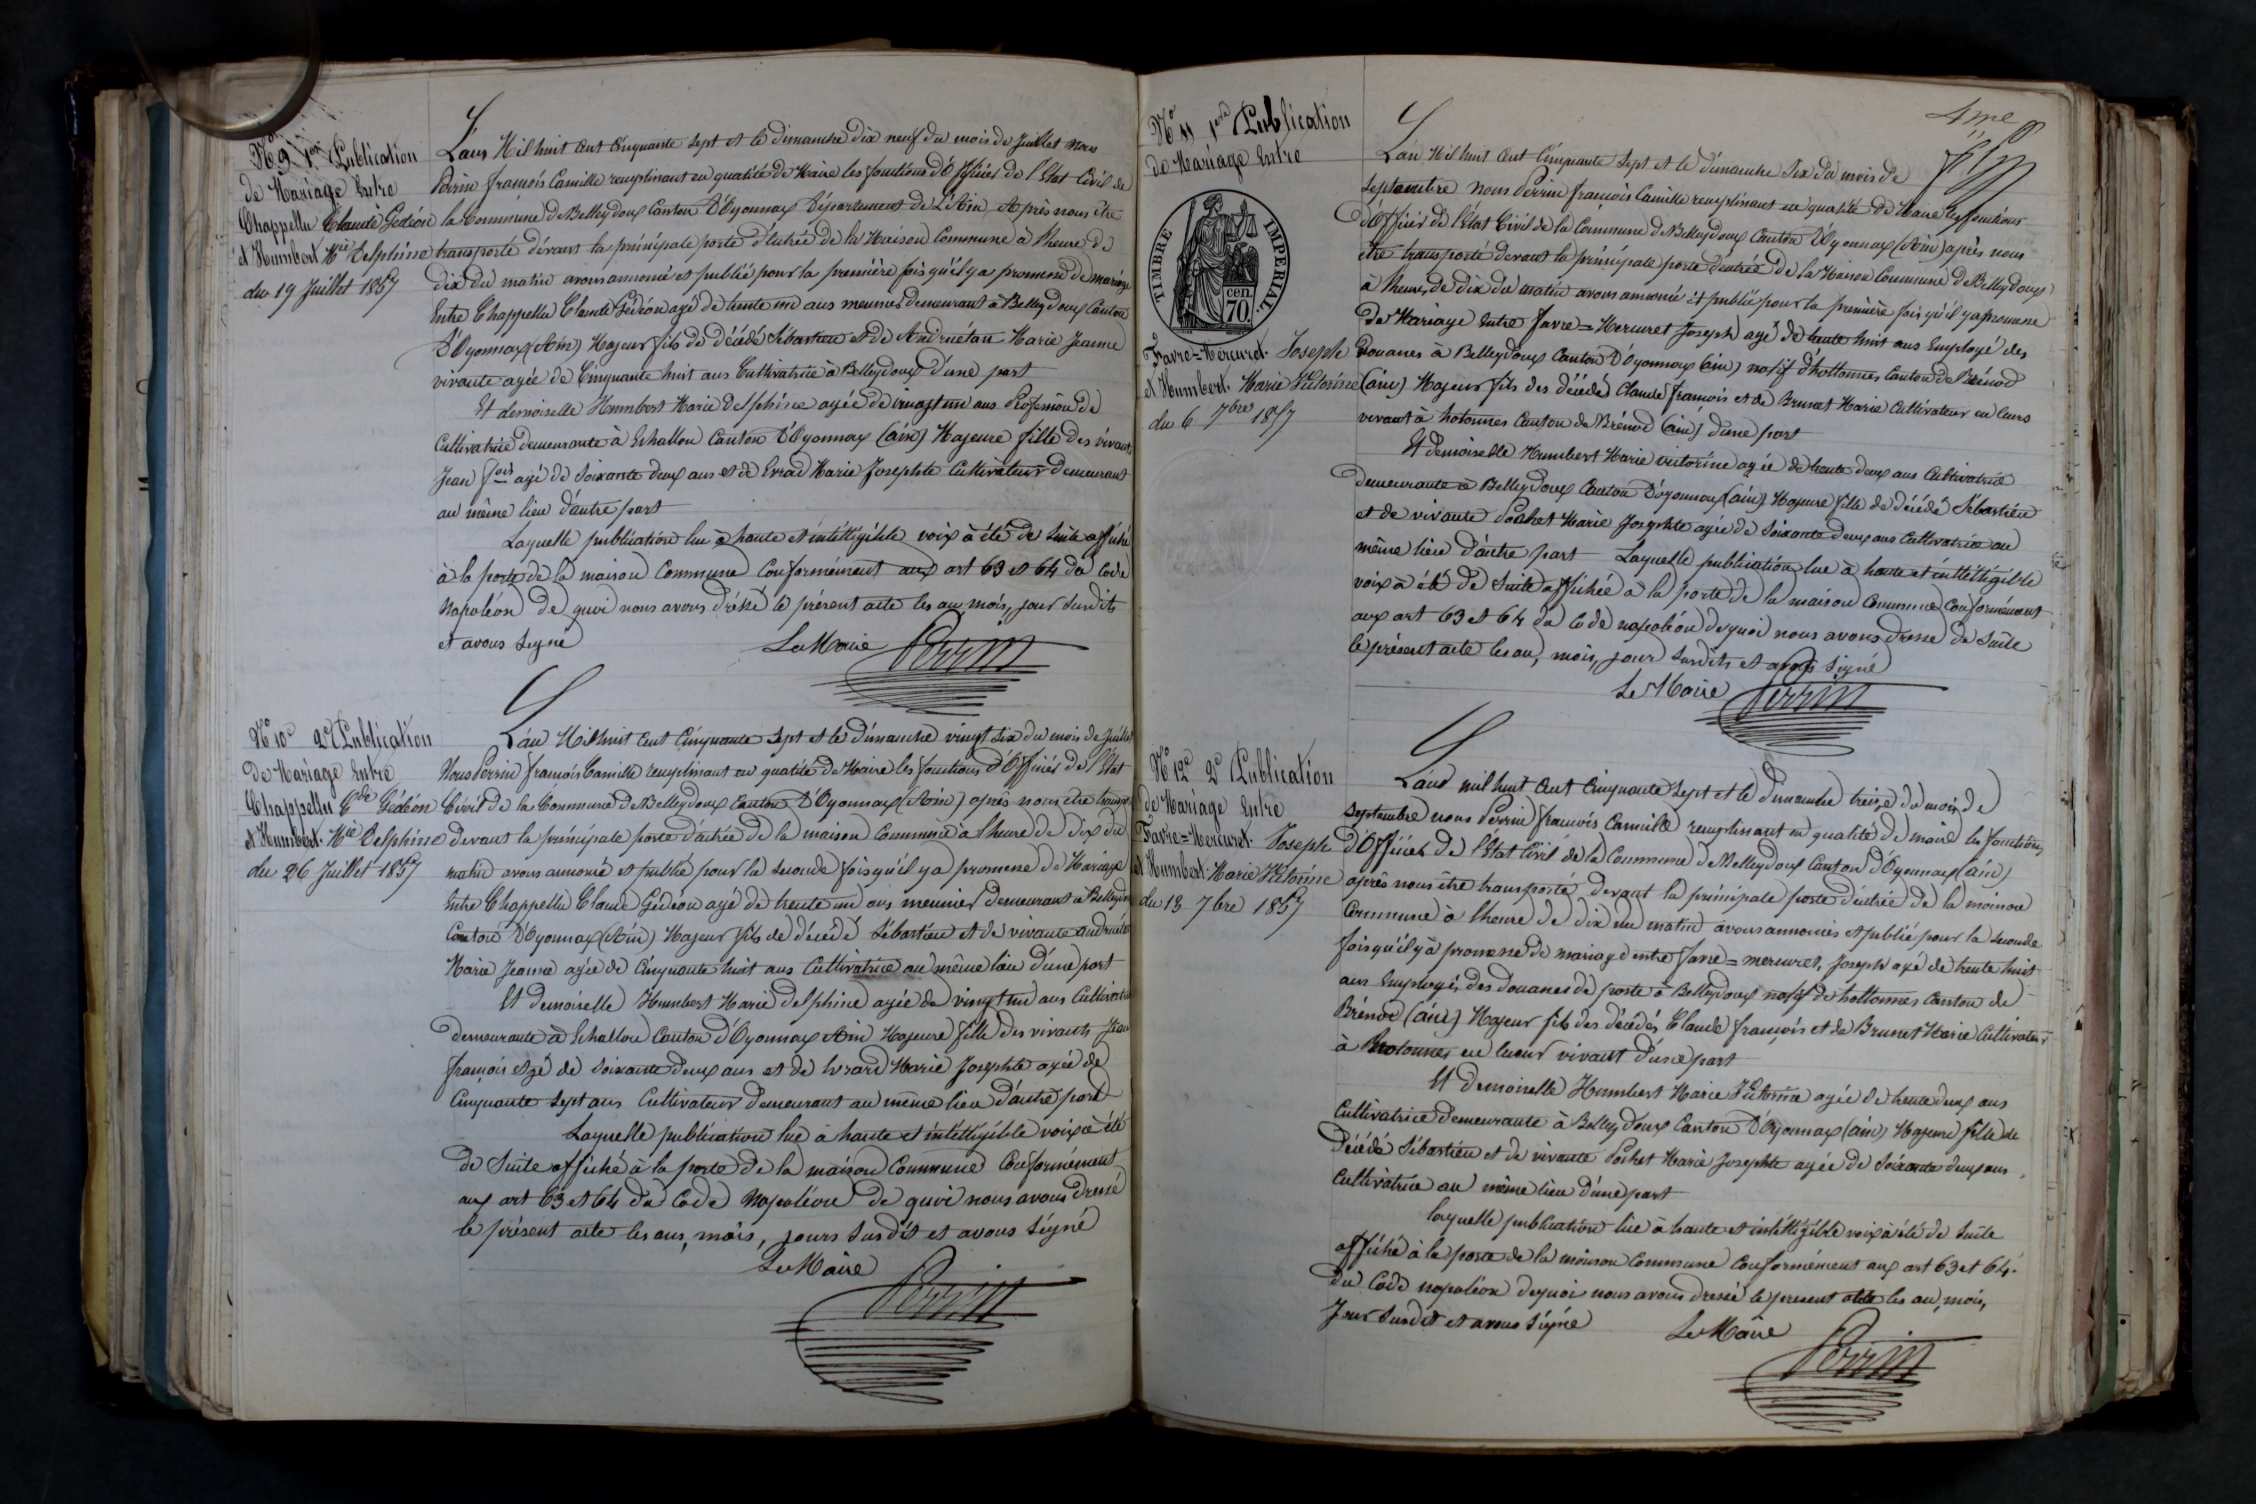 N° 9 1ere Publication
de Mariage Entre
Chappellu Claude Gédéon
et Humbert Mie Delphine
du 19 Juillet 1857
L'an Mil huit cent cinquante sept et le dimanche dix neuf du mois de Juillet nous
Perrin françois Camille remplissant en qualité de Maire les fonctions d'Officier de l'Etat Civil de
la Commune de Belleydoux Canton D'Oyonnax Département de L'Ain, Après nous être
transporté devant la principale porte d'entrée de la Maison Commune à l'heure de
dix du matin avons annoncé et publié pour la première fois qu'il y a promesse de mariage
Entre Chappellu Claude Gédéon agé de trente un ans meunier demeurant à Belleydoux Canton
D'Oyonnax (Ain) Majeur fils de décédé Sébastien et de Andruétan Marie Jeanne
vivante agée de Cinquante huit ans Cultivatrice à Belleydoux d'une part
Et demoiselle Humbert Marie Delphine agée de vingt un ans Profession de
Cultivatrice demeurante à Echallon Canton D'Oyonnax (ain) Majeure fille des vivants
Jean fois agé de Soixante deux ans et de Evrad Marie Josephte Cultivateur demeurant
au même lieu d'autre part
Laquelle publication lue à haute et intelligible voix à été de suite affiché
à la porte de la maison Commune Conformément aux art 63 et 64 du Code
Napoléon de quoi nous avons dréssé le présent acte les an, mois, jour susdits
et avons signé
Le Maire Perrin
N° 10e 2e Publication
De Mariage Entre
Chappellu Cde Gédéon
et Humbert Mie Delphine
du 26 Juillet 1857
L'an Mil huit cent Cinquante sept et le dimanche vingt six du mois de Juillet
Nous Perrin françois Camille remplissant en qualité de Maire les fonctions d'Officier de l'Etat
Civil de la Commune de Belleydoux Canton D'Oyonnax (Ain) après nous être
devant la principale porte d'entrée de la maison Commune à l'heure de dix du
matin avons annoncé et publié pour la seconde fois qu'il y a promesse de Mariage
Entre Chappellu Claude Gédéon agé de trente un ans meunier demeurant à
Canton D'Oyonnax (Ain) Majeur fils de décédé Sébastien et de vivante
Marie Jeanne agée de Cinquante huit ans Cultivatrice au même lieu d'une part
Et Demoiselle Humbert Marie Delphine agée de vingt un ans
demeurante à Echallon Canton d'Oyonnax Ain Majeure fille des vivants Jean
françois agé de soixante deux ans et de Evrard Marie Josephte agée de
Cinquante sept ans Cultivateur demeurant au même lieu d'autre part
Laquelle publication lue à haute et intelligible voix à été
de suite affiché à la porte de la maison Commune Conformément
aux art 63 et 64 du Code Napoléon de quoi nous avons dressé
le présent acte les ans, mois, jours susdit et avons signé
Le Maire
Perrin
4me
N° 11 1ere Publication
de Mariage Entre
TIMBRE IMPERIAL
70 cen.
Favre=Mercuret Joseph
et Humbert Marie Victorine
du 6 7bre 1857
L'an Mil huit cent Cinquante Sept et le dimanche Six du mois de
Septembre nous Perrin françois Camille remplissant en qualité de Maire les fonctions
D'Officier de l'Etat Civil de la Commune de Belleydoux Canton D'Oyonnax (Ain) après nous
être transporté devant la principale porte d'entrée de la Maison Commune de Belleydoux
à l'heure de dix du matin avons annoncé et publié pour la première fois qu'il y a promesse
De Mariage entre Favre=Mercuret Joseph agé de trente huit ans Employé des
Douanes à Belleydoux Canton D'Oyonnax (ain) natif d'hottonnes Canton de Brénod
(ain) Majeur fils des décédés Claude françois et de Brunet Marie Cultivateur en leurs
vivant à hotonnes Canton de Brénod (ain) d'une part
Et demoiselle Humbert Marie victorine agée de trente deux ans Cultivatrice
demeurante à Belleydoux Canton D'Oyonnax (ain) Majeure fille de décédé Sébastien
et de vivante Pochet Marie Josephte agée de Soixante deux ans Cultivatrice au
même lieu d'autre part Laquelle publication lue à haute et intelligible
voix à été de suite affichée à la porte de la maison Commune Conformément
aux art 63 et 64 du Code napoléon de quoi nous avons dressé de suite
le présent acte les an, mois, jour susdits et avons signé
Le Maire Perrin
N° 12e 2e Publication
de Mariage Entre
Favre=Mercuret Joseph
et Humbert Marie Victorine
du 13 7bre 1857
L'an mil huit cent cinquante sept et le dimanche treize du mois de
septembre nous Perrin françois Camille remplissant en qualité de maire les fonctions
D'Officier de l'Etat Civil de la Commune de Belleydoux Canton d'Oyonnax (ain)
après nous être transporté devant la principale porte d'entrée de la maison
Commune à l'heure de dix du matin avons annoncés et publié pour la seconde
fois qu'il y à promesse de mariage entre favre=mercuret, Joseph agé de trente huit
ans Employés des douanes de poste à Belleydoux natif de hottonnes Canton de
Brénod (ain) Majeur fils des décédés Claude françois et de Brunet Marie Cultivateur
à hotonnes en leur vivant d'une part
Et demoiselle Humbert Marie Victorine agée de trente deux ans
Cultivatrice demeurante à Belleydoux Canton D'Oyonnax (ain) Majeure fille de
Décédé Sébastien et de vivante Pochet Marie Josephte agée de Soixante deux ans
Cultivatrice au même lieu d'une part
laquelle publication lue à haute et intelligible voix à été de suite
affiché à la porte de la maison Commune Conformément aux art 63 et 64
du Code napoléon de quoi nous avons dressé le présent acte les an, mois,
Jour susdit et avons signé
Le Maire
Perrin